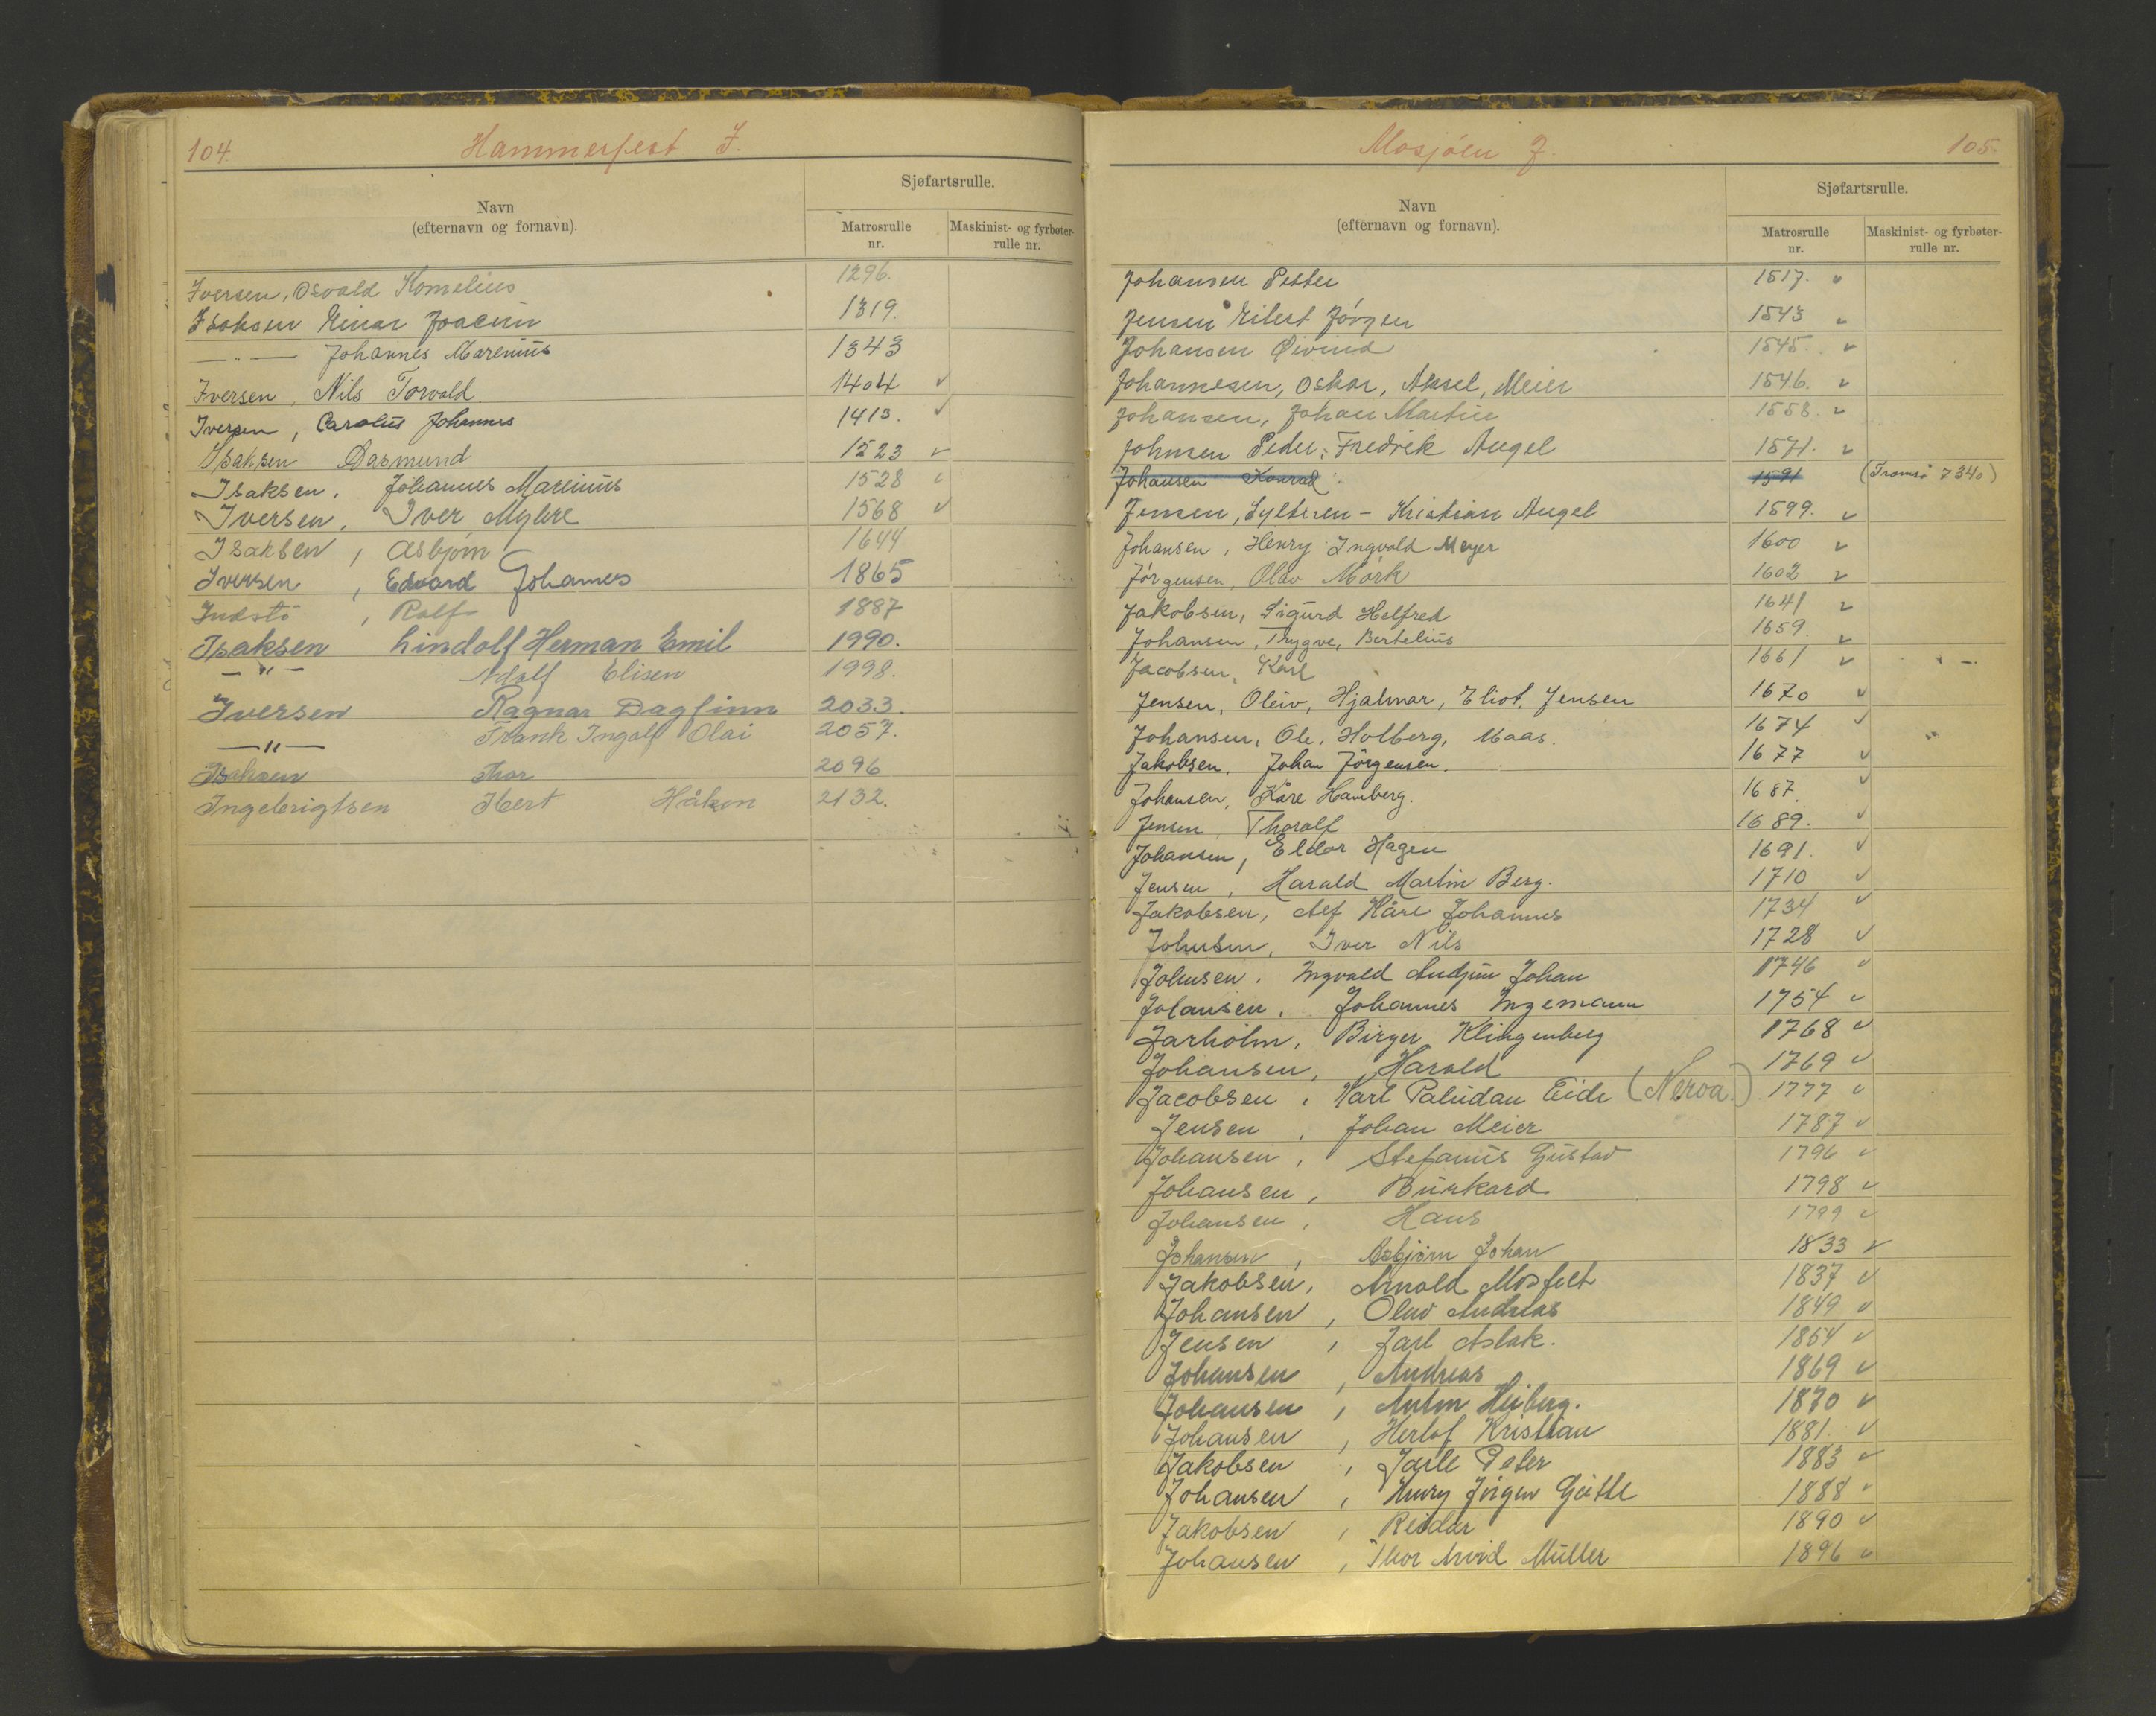 104.
Hammerfest I.
Navn
(efternavn og fornavn).
Sjøfartsrulle.
Matrosrulle
nr.
Maskinist- og fyrbøter-
rulle nr.
Iversen, Osvald Kornelius 1296.
Isaksen Einar Joacim 1319.
—„— Johannes Marenius 1343
Iversen, Nils Torvald. 1404 ✓
Iversen, Carolus Johannes 1413. ✓
Isaksen Dagmund 1523 ✓
Isaksen, Johannes Marenius 1528 ✓
Iversen, Iver Myhre 1568 ✓
Isaksen, Asbjørn 1644
Iversen, Edvard Johannes 1865
Indstö, Rolf 1887
Isaksen Lindolf Herman Emil 1990.
—"— Adolf Elisen 1998.
Iversen Ragnar Dagfinn 2033.
—"— Frank Ingolf Olai 2057.
Isaksen Thor 2096
Ingebrigtsen Håkon 2132.
Mosjöen J.
105.
Navn
(efternavn og fornavn).
Sjøfartsrulle.
Matrosrulle
nr.
Maskinist- og fyrbøter-
rulle nr.
Johansen Petter 1517. ✓
Jensen Eilert Jörgen 1543 ✓
Johansen Øivind 1545. ✓
Johannesen, Oskar, Aksel, Meier 1546. ✓
Johansen, Johan Martin 1558. ✓
Johnsen Peder, Fredrik Angel 1571. ✓
Johansen Konrad 1591 (Tromsö 7340)
Jensen, Sylteren - Kristian Angel 1599. ✓
Johansen, Henry Ingvald Meyer 1600 ✓
Jörgensen, Olav Mörk 1602 ✓
Jakobsen, Sigurd Helfred 1641 ✓
Johansen, Trygve, Bertelius 1659. ✓
Jacobsen, Karl 1661 ✓
Jensen, Oleiv, Hjalmar, Eliot, Jensen 1670 ✓
Johansen, Ole, Holberg, Maas. 1674 ✓
Jakobsen, Johan Jörgensen. 1677 ✓
Johansen, Kåre Hamberg. 1687. ✓
Jensen, Thoralf 1689. ✓
Johansen, Eldor Hagen 1691. ✓
Jensen, Harald Martin Berg. 1710 ✓
Jakobsen, Alf Kåre Johannes 1734 ✓
Johnsen, Iver Nils 1728 ✓
Johnsen, Ingvald Johan 1746 ✓
Johansen, Johannes Ingemann 1754 ✓
Jarholm, Birger Klingenberg 1768 ✓
Johansen, Harald 1769 ✓
Jacobsen, Karl Paludan Eide (Neroa.) 1777 ✓
Jensen, Johan Meier 1787 ✓
Johansen, Stefanus Gustav 1796 ✓
Johansen, Burkard 1798 ✓
Johansen, Hans 1799 ✓
Johansen, Asbjörn Johan 1833 ✓
Jakobsen, Arnold Mosfelt 1837 ✓
Johansen, Olav Andreas 1849 ✓
Jensen, Jarl Aslak. 1854 ✓
Johansen, Andreas 1869 ✓
Johansen, Anton Heiberg. 1870 ✓
Johansen, Herlof Kristian 1881 ✓
Jakobsen, Jarle Peter 1883 ✓
Johansen, Henry Jörgen 1888 ✓
Jakobsen, Reidar 1890 ✓
Johansen, Thor Arvid Müller 1896 ✓